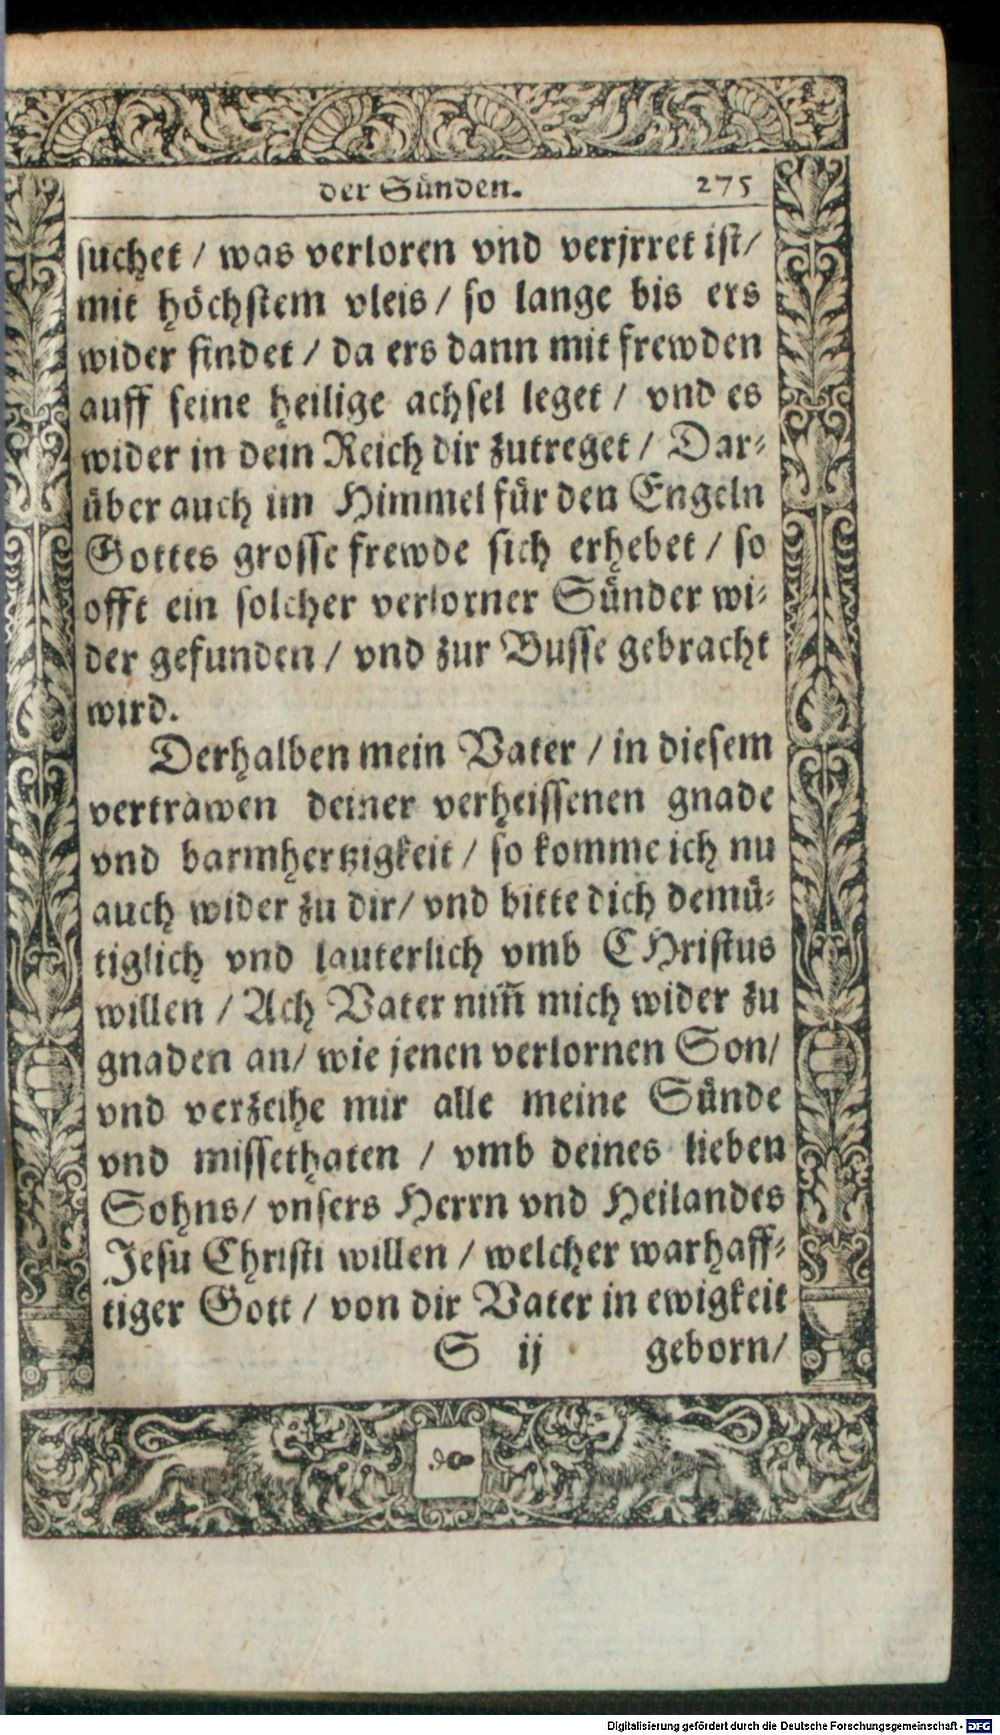 der Sünden. 275
suchet / was verloren vnd verjrret ist/
mit höchstem vleis / so lange bis ers
wider findet / da ers dann mit frewden
auff seine heilige achsel leget / vnd es
wider in dein Reich dir zutreget / Dar-
über auch im Himmel für den Engeln
Gottes grosse frewde sich erhebet / so
offt ein solcher verlorner Sünder wi-
der gefunden / vnd zur Busse gebracht
wird.
Derhalben mein Vater / in diesem
vertrawen deiner verheissenen gnade
vnd barmhertzigkeit / so komme ich nu
auch wider zu dir/ vnd bitte dich demü-
tiglich vnd lauterlich vmb CHristus
willen / Ach Vater nim̄ mich wider zu
gnaden an/ wie jenen verlornen Son/
vnd verzeihe mir alle meine Sünde
vnd missethaten / vmb deines lieben
Sohns/ vnsers Herrn vnd Heilandes
Jesu Christi willen / welcher warhaff-
tiger Gott / von dir Vater in ewigkeit
S ij geborn/
Digitalisierung gefördert durch die Deutsche Forschungsgemeinschaft - DFG